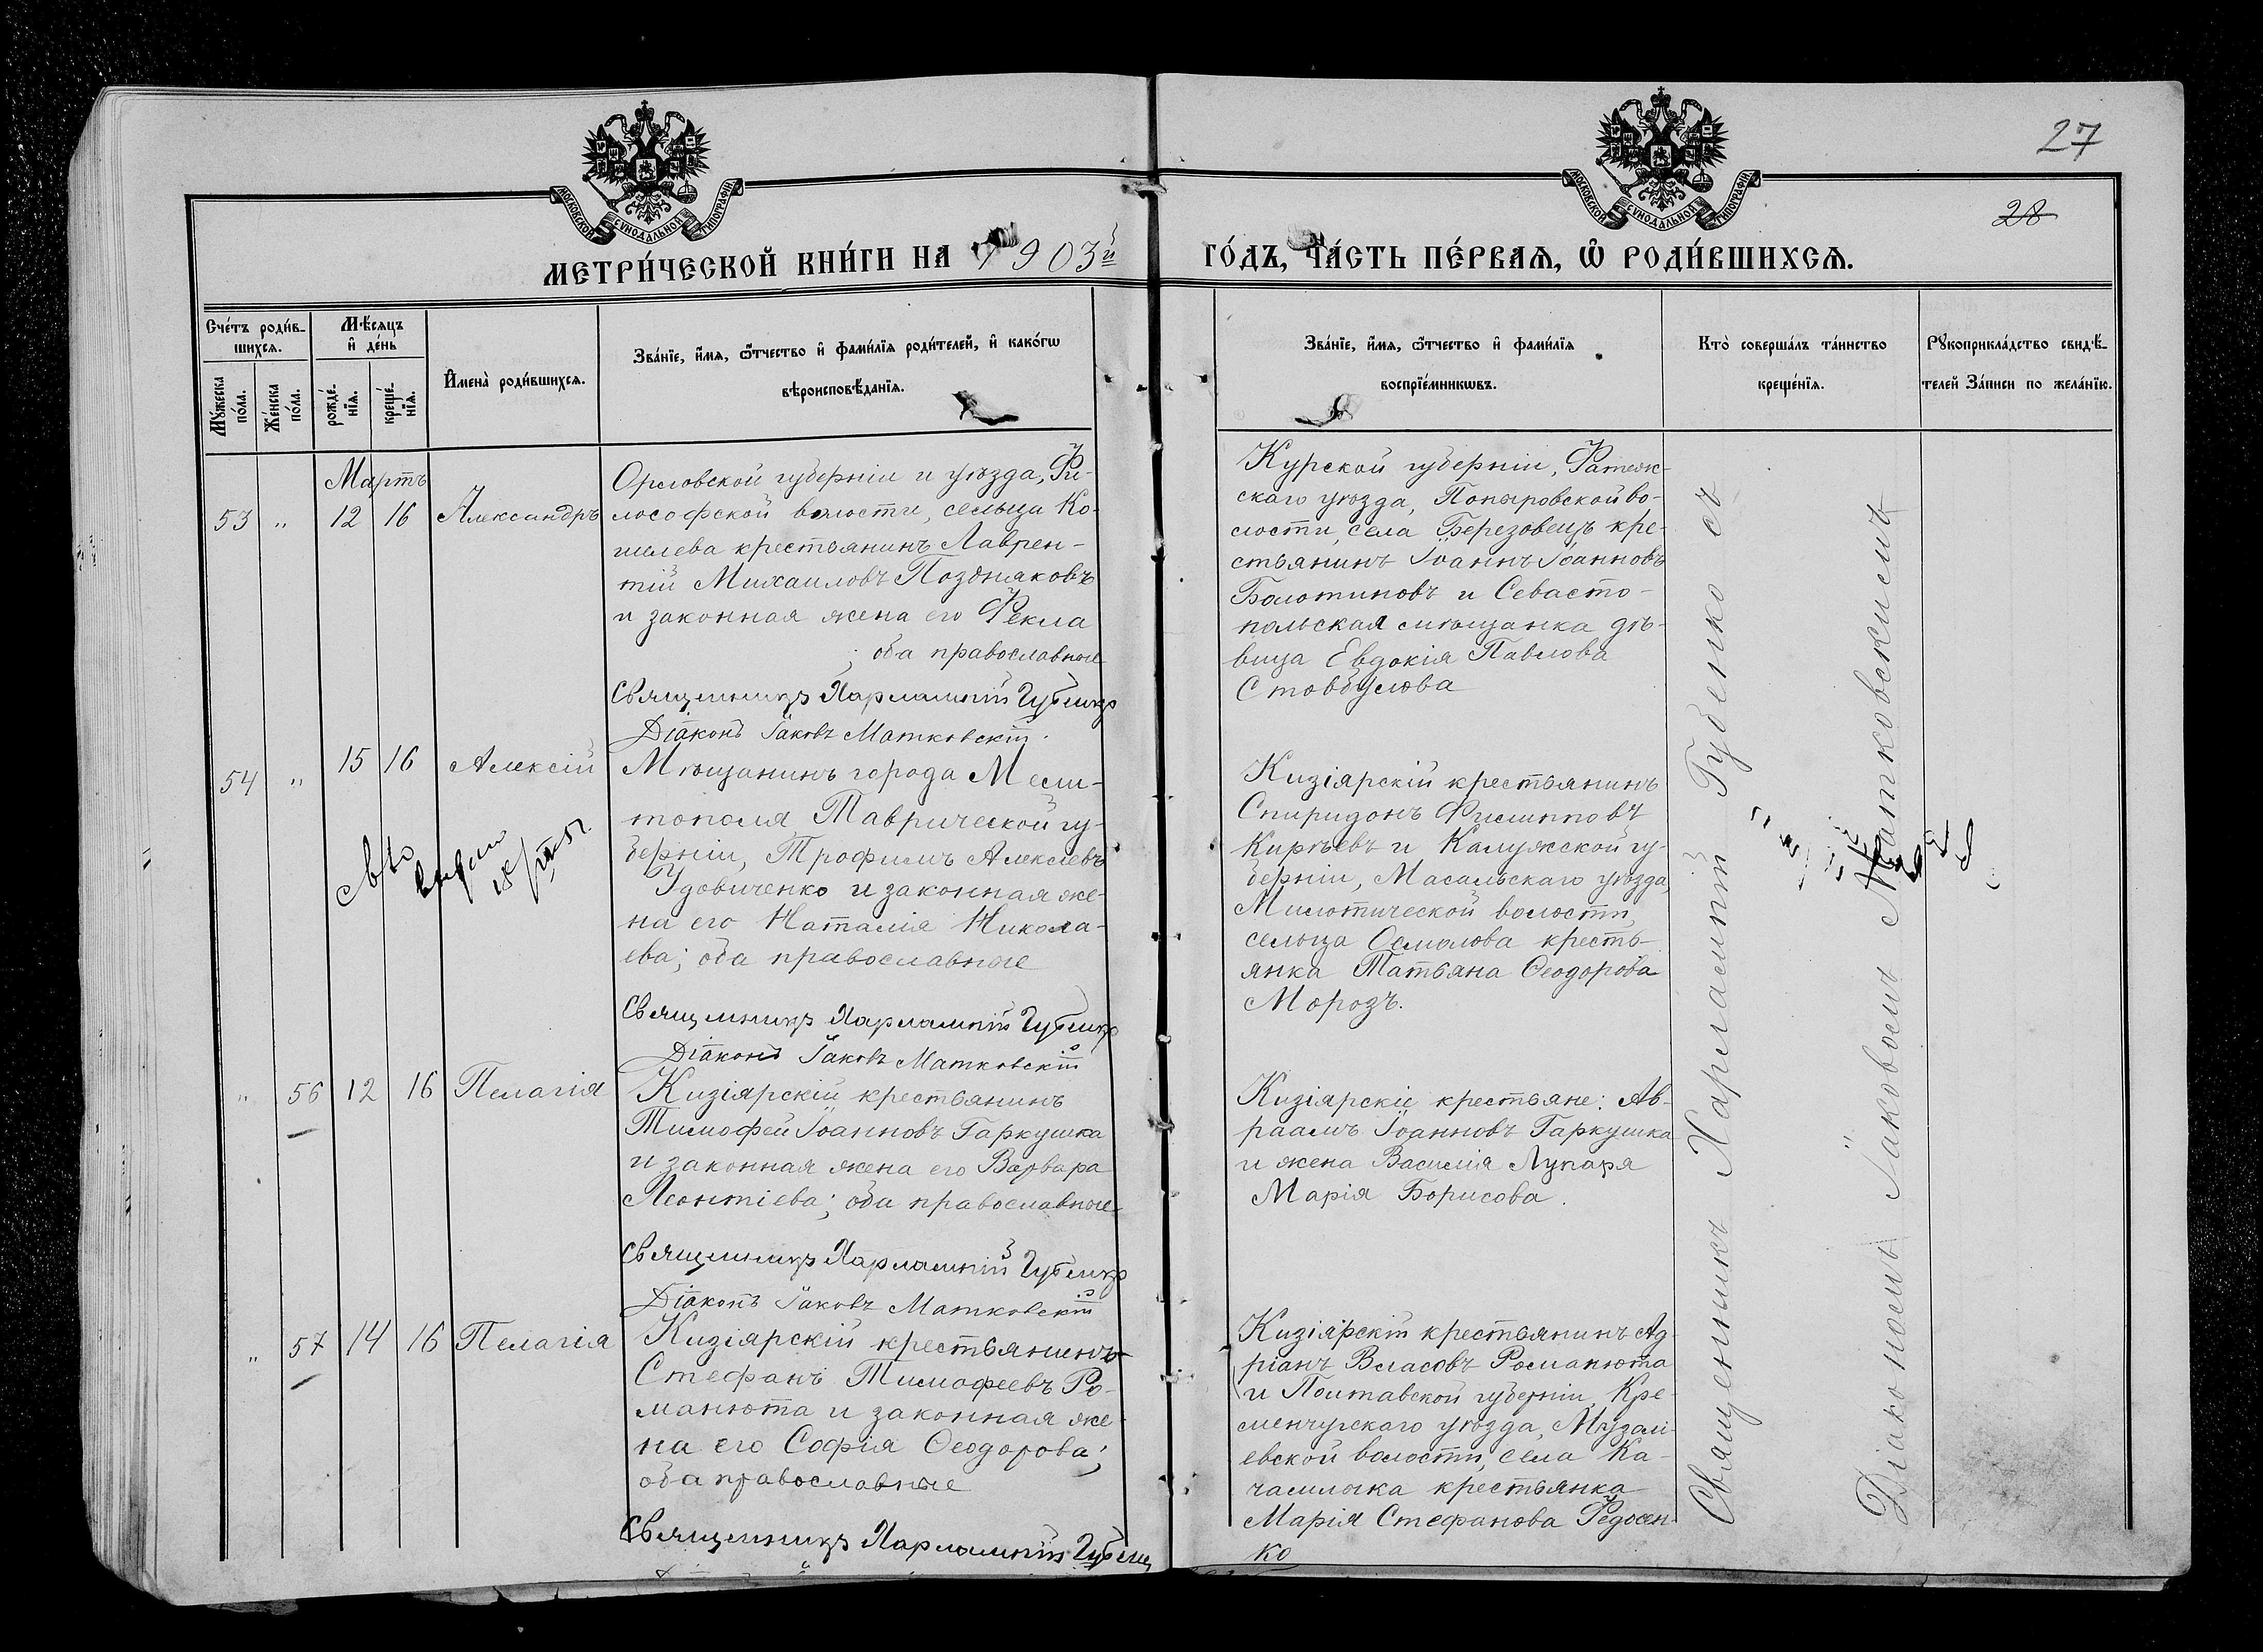 27
28
МОСКОВСКОЙ СѴНОДАЛЬНОЙ ТИПОГРАФІИ
МОСКОВСКОЙ СѴНОДАЛЬНОЙ ТИПОГРАФІИ
МЕТРИ́ЧЕСКОЙ КНИ́ГИ НА 1903й ГО́ДЪ, ЧА́СТЬ ПЕ́РВАѦ, Ѽ РОДИ́ВШИХСѦ.
Сче́тъ роди́в-
шихсѧ.
Мꙋ́жеска по́ла.
Же́нска по́ла.
Мѣ́сѧцъ
и҆ де́нь
рожде́-
нїѧ.
креще́-
нїѧ.
И҆мена̀ роди́вшихсѧ.
Зва́нїе, и҆́мѧ, ѻ҆́тчество и҆ фами́лїѧ роди́телей, и҆ како́гѡ
вѣроисповѣ́данїѧ.
Зва́нїе, и҆́мѧ, ѻ҆́тчество и҆ фами́лїѧ
воспрїе́мникѡвъ.
Кто̀ соверша́лъ та́инство
креще́нїѧ.
Рꙋкоприкла́дство свидѣ́-
телей За́писи по жела́нїю.
Мартъ
53 " 12 16 Александръ
Орловской губерніи и уѣзда, Фи-
лософской волости, сельца Ко-
шелева крестьянинъ Лаврен-
тій Михаиловъ Поздняковъ
и законная жена его Фекла
; оба православные
Священникъ Харлампій Губенко
Діаконъ Іаковъ Матковскій
Курской губерніи, Фатеж-
скаго уѣзда, Поныровской во-
лости, села Березовецъ кре-
стьянинъ Іоаннъ Іоанновъ
Болотиновъ и Севасто-
польская мѣщанка дѣ-
вица Евдокія Павлова
54 " 15 16 Алексій
Мѣщанинъ города Мели-
тополя, Таврической гу-
берніи, Трофимъ Алексіевъ
Удовиченко и законная же-
на его Наталія Никола-
ева; оба православные
Священникъ Харлампій Губенко
Діаконъ Іаковъ Матковскій
Кизіярскій крестьянинъ
Спиридонъ Филипповъ
Кирѣевъ и Калужской гу-
берніи, Масальскаго уѣзда,
Милотической волости,
сельца Осмолова кресть-
янка Татьяна Ѳеодорова
Морозъ.
" 56 12 16 Пелагія
Кизіярскій крестьянинъ
Тимофей Іоанновъ Гаркушка
и законная жена его Варвара
Леонтіева; оба православные
Священникъ Харлампій Губенко
Діаконъ Іаковъ Матковскій
Кизіярскіе крестьяне: Ав-
раамъ Іоанновъ Гаркушка
и жена Василія Лупаря
Марія Борисова.
" 57 14 16 Пелагія
Кизіярскій крестьянинъ
Стефанъ Тимофеевъ Ро-
манюта и законная же-
на его Софія Ѳеодорова;
оба православные
Священникъ Харлампій Губенко
Кизіярскій крестьянинъ Ад-
ріанъ Власовъ Романюта
и Полтавской губерніи, Кре-
менчугскаго уѣзда,
евской волости, села Ка-
крестьянка
Марія Стефанова Федосен-
ко
Священникъ Харлампій Губенко съ
Діакономъ Іаковомъ Матковскимъ